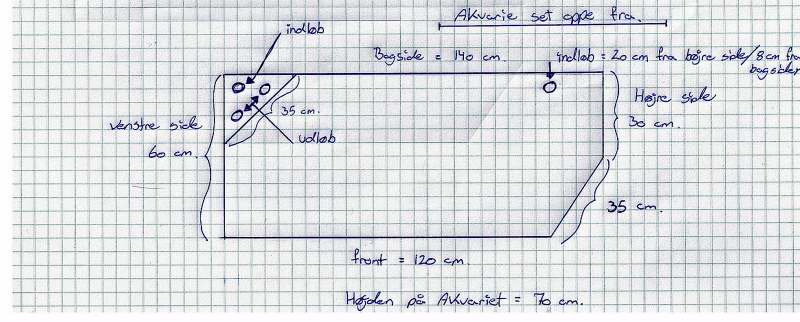 Akvarie set oppe fra.
indløb
Bagside = 140 cm.
indløb = 20 cm fra højre side/8cm fra
bagsiden
35 cm.
udløb
Venstre side
60 cm.
Højre side
30 cm.
35 cm.
front = 120 cm.
Højden på Akvariet = 70 cm.